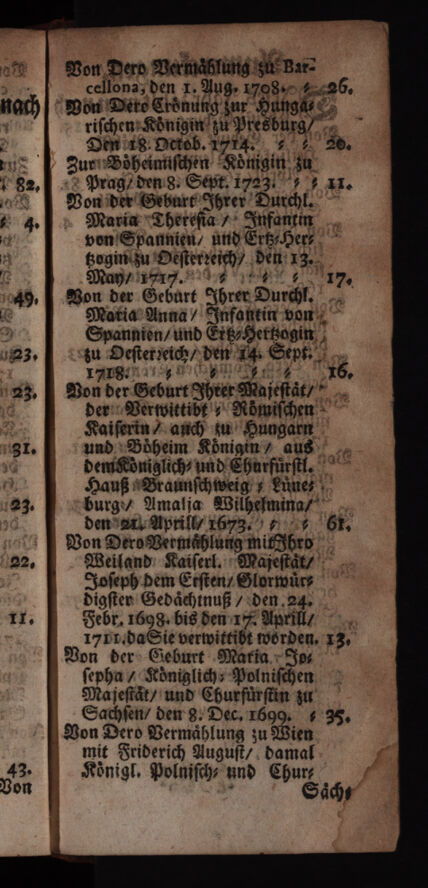 nach
82.
4.
49.
23.
23.
31.
23.
22.
11.
43.
Von
Von Dero Vermählung zu Bar-
cellona, den 1. Aug. 1708. ⸗ 26.
Von Dero Crönung zur Hunga-
rischen Königin zu Presburg/
Den 18. Octob. 1714. ⸗ ⸗ 20.
Zur Böheimischen Königin zu
Prag/ den 8. Sept. 1723. ⸗ ⸗ 11.
Von der Geburt Ihrer Durchl.
Maria Theresia / Infantin
von Spannien/ und Ertz⸗Her⸗
tzogin zu Oesterreich/ den 13.
May/ 1717. ⸗ ⸗ ⸗ ⸗ 17.
Von der Geburt Ihrer Durchl.
Maria Anna/ Infantin von
Spannien/ und Ertz⸗Hertzogin
zu Oesterreich/ den 14. Sept.
1718. ⸗ ⸗ ⸗ ⸗ ⸗ 16.
Von der Geburt Ihrer Majestät/
der Verwittibt ⸗ Römischen
Kaiserin/ auch zu Hungarn
und Böheim Königin / aus
dem Königlich⸗ und Churfürstl.
Hauß Braunschweig ⸗ Lüne⸗
burg/ Amalia Wilhelmina/
den 21. Aprill/ 1673. ⸗ ⸗ 61.
Von Dero Vermählung mit Ihro
Weiland Kaiserl. Majestät/
Joseph dem Ersten/ Glorwür⸗
digster Gedächtnuß / den 24.
Febr. 1698. bis den 17. Aprill/
1711. da Sie verwittibt worden. 13.
Von der Geburt Maria Jo⸗
sepha / Königlich⸗ Polnischen
Majestät/ und Churfürstin zu
Sachsen/ den 8. Dec. 1699. ⸗ 35.
Von Dero Vermählung zu Wien
mit Friderich August/ damal
Königl. Polnisch⸗ und Chur⸗
Säch⸗